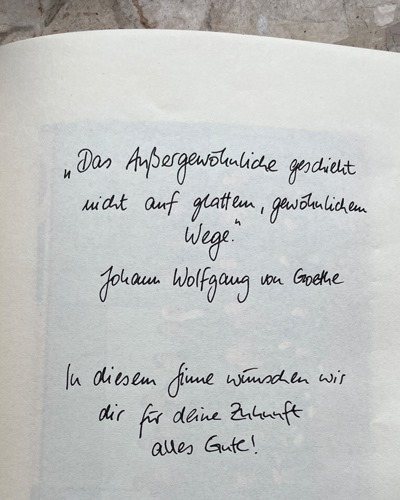 „Das Außergewöhnliche geschieht
nicht auf glattem, gewöhnlichem
Wege.“
Johann Wolfgang von Goethe
In diesem Sinne wünschen wir
dir für deine Zukunft
alles Gute!